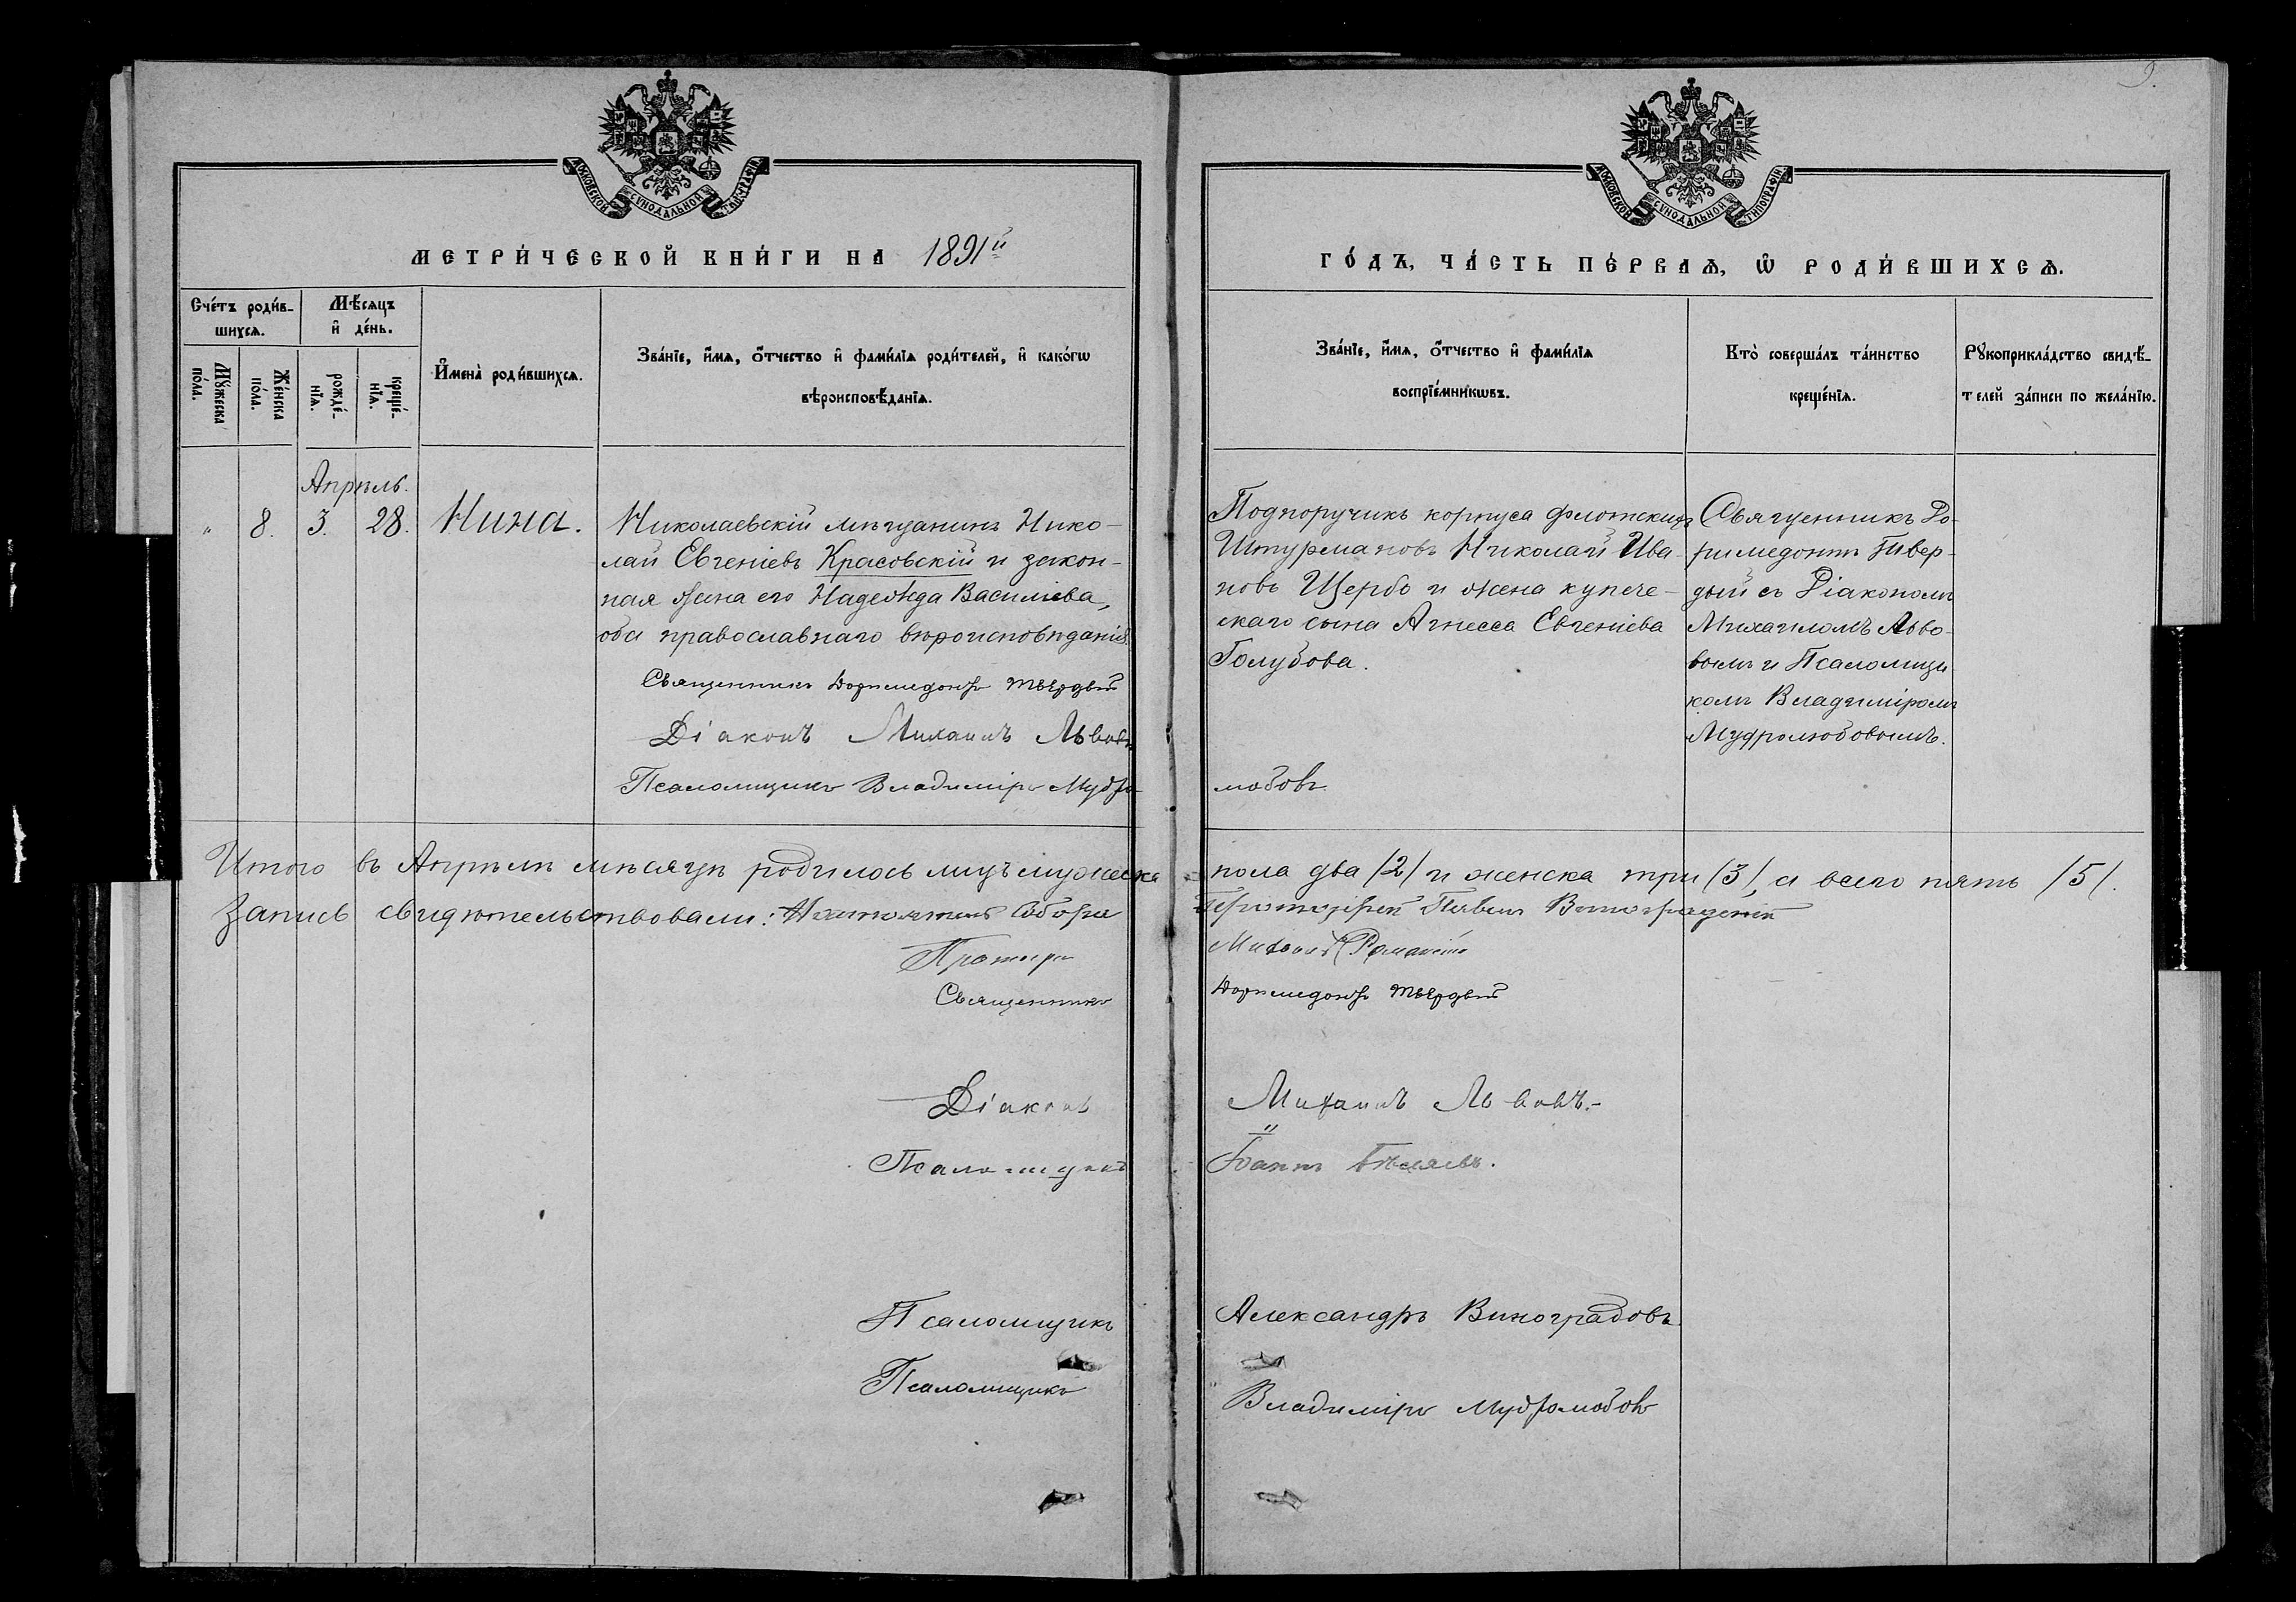 9.
МОСКОВСКОЙ СѴНОДАЛЬНОЙ ТИПОГРАФІИ
МОСКОВСКОЙ СѴНОДАЛЬНОЙ ТИПОГРАФІИ
МЕТРИ́ЧЕСКОЙ КНИ́ГИ НА 1891й
ГО́ДЪ, ЧА́СТЬ ПЕ́РВАѦ, Ѡ҆ РОДИ́ВШИХСѦ.
Сче́тъ роди́в-
шихсѧ.
Мѣ́сѧцъ
и҆ де́нь.
Мꙋ́жеска по́ла.
Же́нска по́ла.
рожде́-
нїѧ.
креще́-
нїѧ.
И҆мена̀ роди́вшихсѧ.
Зва́нїе, и҆́мѧ, ѻ҆́тчество и҆ фами́лїѧ роди́телей, и҆ како́гѡ
вѣроисповѣ́данїѧ.
Зва́нїе, и҆́мѧ, ѻ҆́тчество и҆ фами́лїѧ
воспрїе́мникѡвъ.
Кто̀ соверша́лъ та́инство
креще́нїѧ.
Рꙋкоприкла́дство свидѣ́-
телей за́писи по жела́нїю.
Апрѣль.
" 8. 3. 28. Нина.
Николаевскій мѣщанинъ Нико-
лай Евгеніевъ Красовскій и закон-
ная жена его Надежда Василіева,
оба православнаго вѣроисповѣданія.
Священникъ Доримедонтъ Твердый
Діаконъ Михаилъ Львовъ
Псаломщикъ Владиміръ Мудро-
любовъ
Подпоручикъ корпуса флотскихъ
Штурмановъ Николай Ива-
новъ Щербо и жена купече-
скаго сына Агнесса Евгеніева
Голубова.
Священникъ До-
римедонтъ Твер-
дый съ Діакономъ
Михаиломъ Льво-
вымъ и Псаломщи
комъ Владиміромъ
Мудролюбовымъ.
Итого въ Апрѣлѣ мѣсяцѣ родилось мужеска пола два /2/ и женска три /3/, а всего пять /5/.
Запись свидѣтельствовали: Настоятель Собора Протоіерей Павелъ
Михаилъ
Священникъ Доримедонтъ Твердый
Діаконъ Михаилъ Львовъ.-
Псаломщикъ Іоаннъ Бѣляевъ.
Псаломщикъ Александръ Виноградовъ
Псаломщикъ Владиміръ Мудролюбовъ